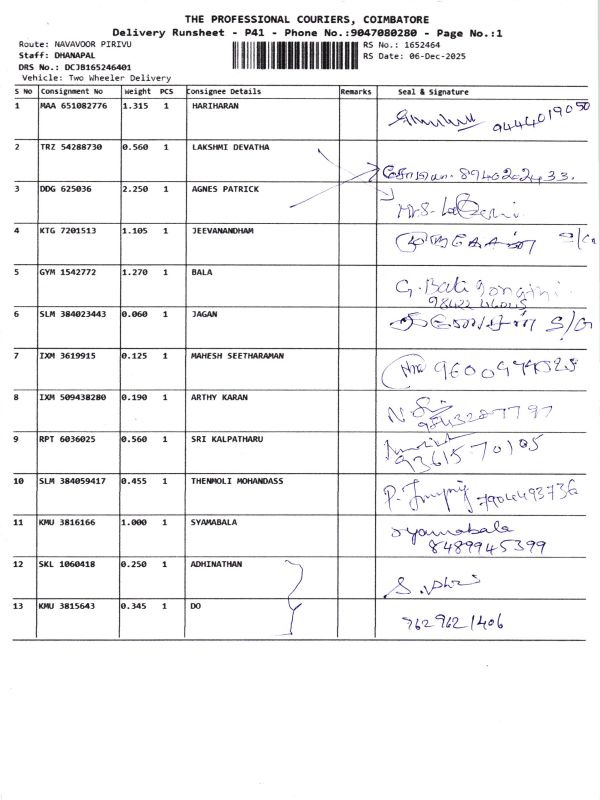 THE PROFESSIONAL COURIERS, COIMBATORE
Delivery Runsheet - P41 - Phone No.:9047080280 - Page No.:1
Route: NAVAVOOR PIRIVU
RS No.: 1652464
Staff: DHANAPAL
RS Date: 06-Dec-2025
DRS No.: DCJB165246401
Vehicle: Two Wheeler Delivery
S No Consignment No Weight PCS Consignee Details Remarks Seal & Signature
1 MAA 651082776 1.315 1 HARIHARAN
9444019050
2 TRZ 54288730 0.560 1 LAKSHMI DEVATHA
8940202433.
3 DDG 625036 2.250 1 AGNES PATRICK
Mrs.
4 KTG 7201513 1.105 1 JEEVANANDHAM
5 GYM 1542772 1.270 1 BALA
G.
6 SLM 384023443 0.060 1 JAGAN
S/G
7 IXM 3619915 0.125 1 MAHESH SEETHARAMAN
8 IXM 509438280 0.190 1 ARTHY KARAN
N
9 RPT 6036025 0.560 1 SRI KALPATHARU
93615 70105
10 SLM 384059417 0.455 1 THENMOLI MOHANDASS
P. 7904493736
11 KMU 3816166 1.000 1 SYAMABALA
syamabala
8489945399
12 SKL 1060418 0.250 1 ADHINATHAN
S.
13 KMU 3815643 0.345 1 DO
9629621406